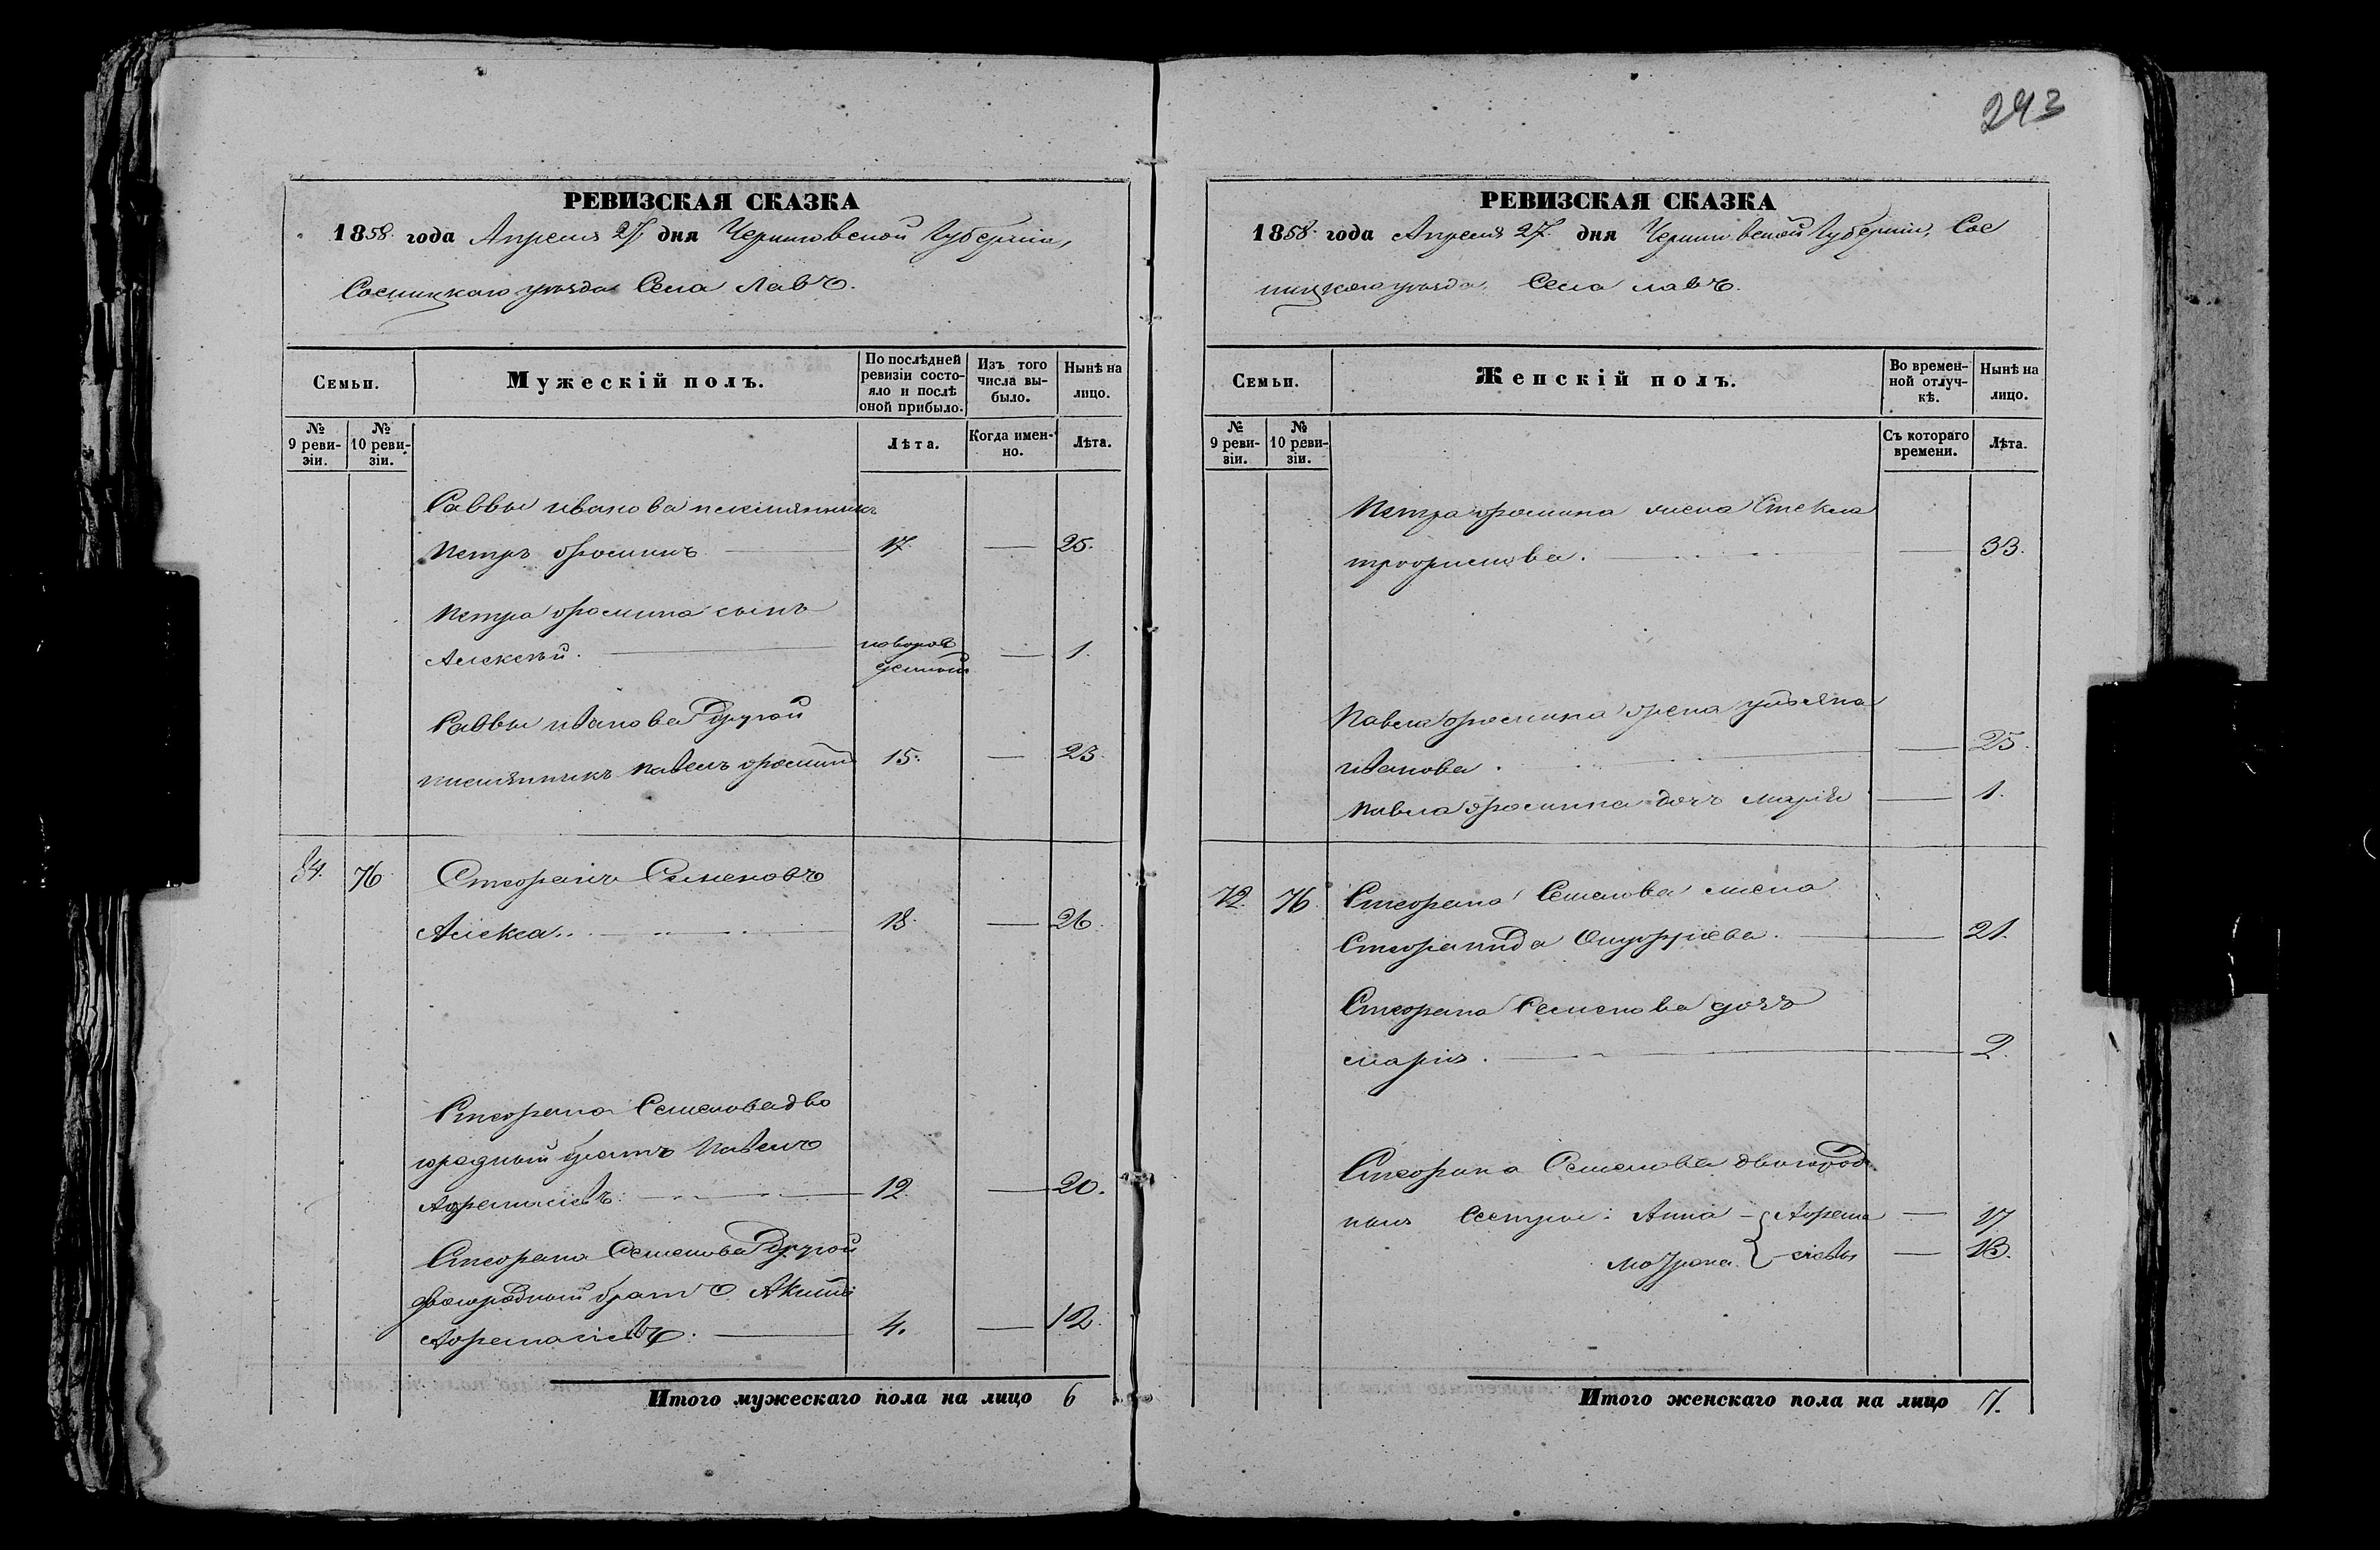 243
РЕВИЗСКАЯ СКАЗКА
1858. года Апреля 27 дня Черниговской Губерніи,
Сосницкаго уѣзда Села Лавъ.
Семьи.
Мужескій полъ.
По послѣдней ревизіи состояло и послѣ оной прибыло.
Изъ того числа выбыло.
Нынѣ на лицо.
№ 9 ревизіи.
№ 10 ревизіи.
Лѣта.
Когда именно.
Лѣта.
Саввы иванова племянникъ
Петръ фоминъ 17. 25.
Петра фомина сынъ
Алексѣй. новорожденный 1.
Саввы иванова другой
племянникъ павелъ фоминъ 15. 23.
84. 76. Стефанъ Семеновъ
Алекса.. 18. 26.
Стефана Семенова дво
юродный братъ павелъ
Афанасіевъ. 12. 20.
Стефана Семенова другой
двоюродный братъ Акимъ
Афанасіевъ. 4. 12.
Итого мужескаго пола на лицо 6
РЕВИЗСКАЯ СКАЗКА
1858. года Апреля 27. дня Черниговской Губерніи, Сос
ницкого уѣзда, Села лавъ.
Семьи.
Женскій полъ.
Во временной отлучкѣ.
Нынѣ на лицо.
№ 9 ревизіи.
№ 10 ревизіи.
Съ котораго времени.
Лѣта.
Петра фомина жена
33.
Павла фомина жена ульяна
иванова. 25.
Павла фомина дочь марія 1.
72. 76. Стефана Семенова жена
21.
Стефана Семенова дочь
марія. 2.
Стефана Семенова двоюрод
ныя Сестры: Анна - Афана 17
Мотрона. - сіевы 13.
Итого женскаго пола на лицо 7.